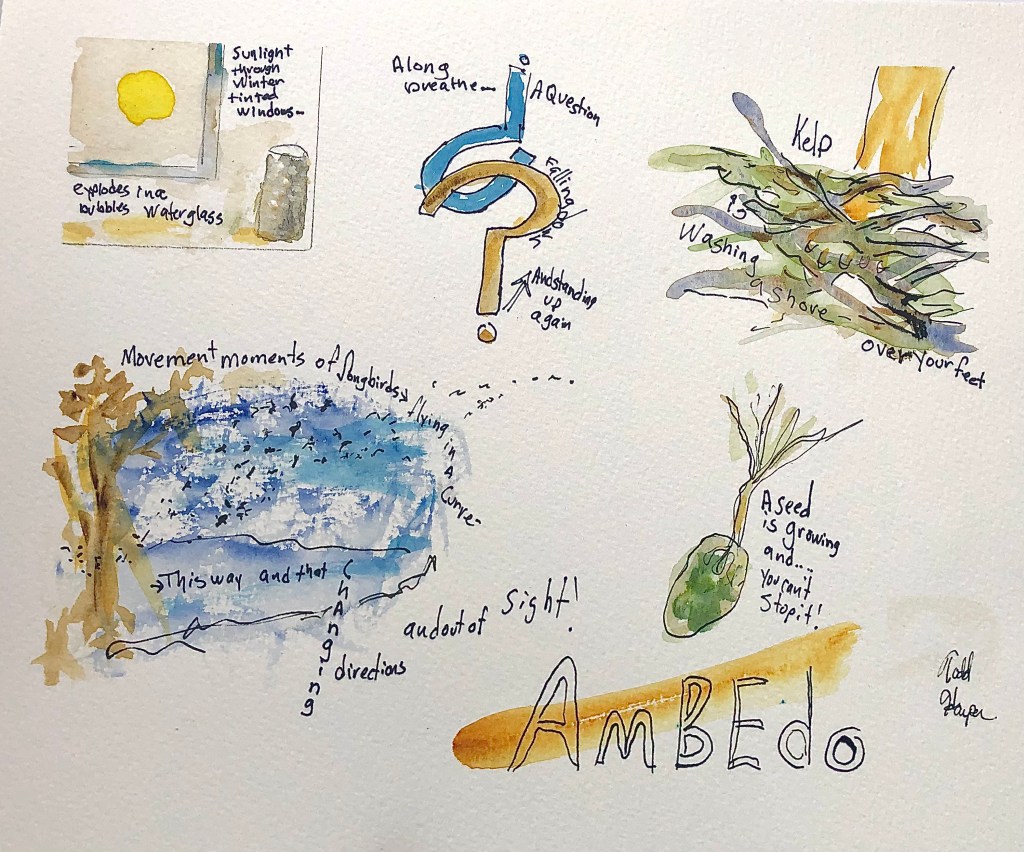 Sunlight
through
Winter
tinted
windows...
explodes in a
bubbles Waterglass
Along
breathe...
A Question
Falling back
And standing
up
again
Kelp
is
Washing
ashore
over your feet
Movement moments of Songbirds
flying in a curve
This way and that
Changing
directions
and out of sight!
A seed
is growing
and....
you can't
Stop it!
AmBEdo
Todd